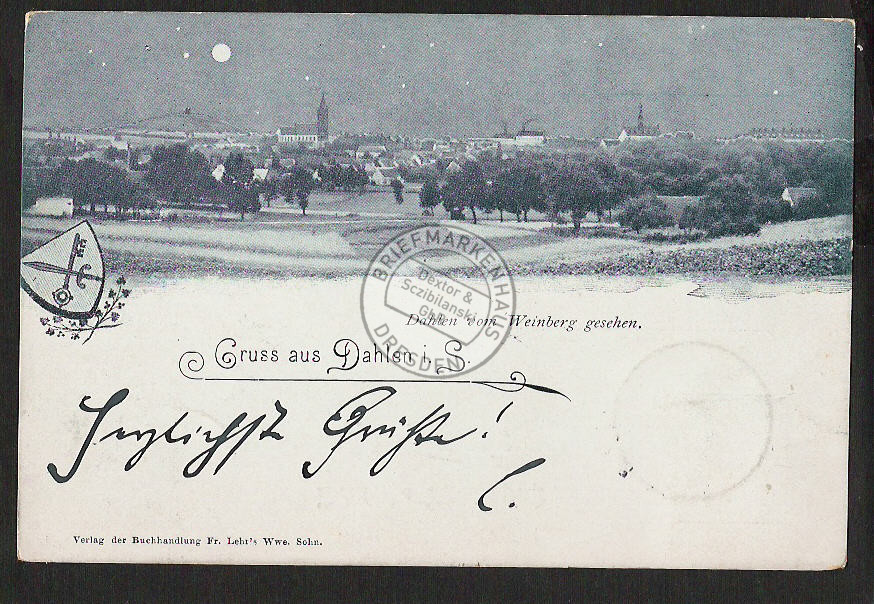 BRIEFMARKENHAUS
Dextor &
Sczibilanski
GbR
DRESDEN
Dahlen vom Weinberg gesehen.
Gruss aus Dahlen i. S.
Herzlichste Grüße!
C.
Verlag der Buchhandlung Fr. Leht's Wwe. Sohn.